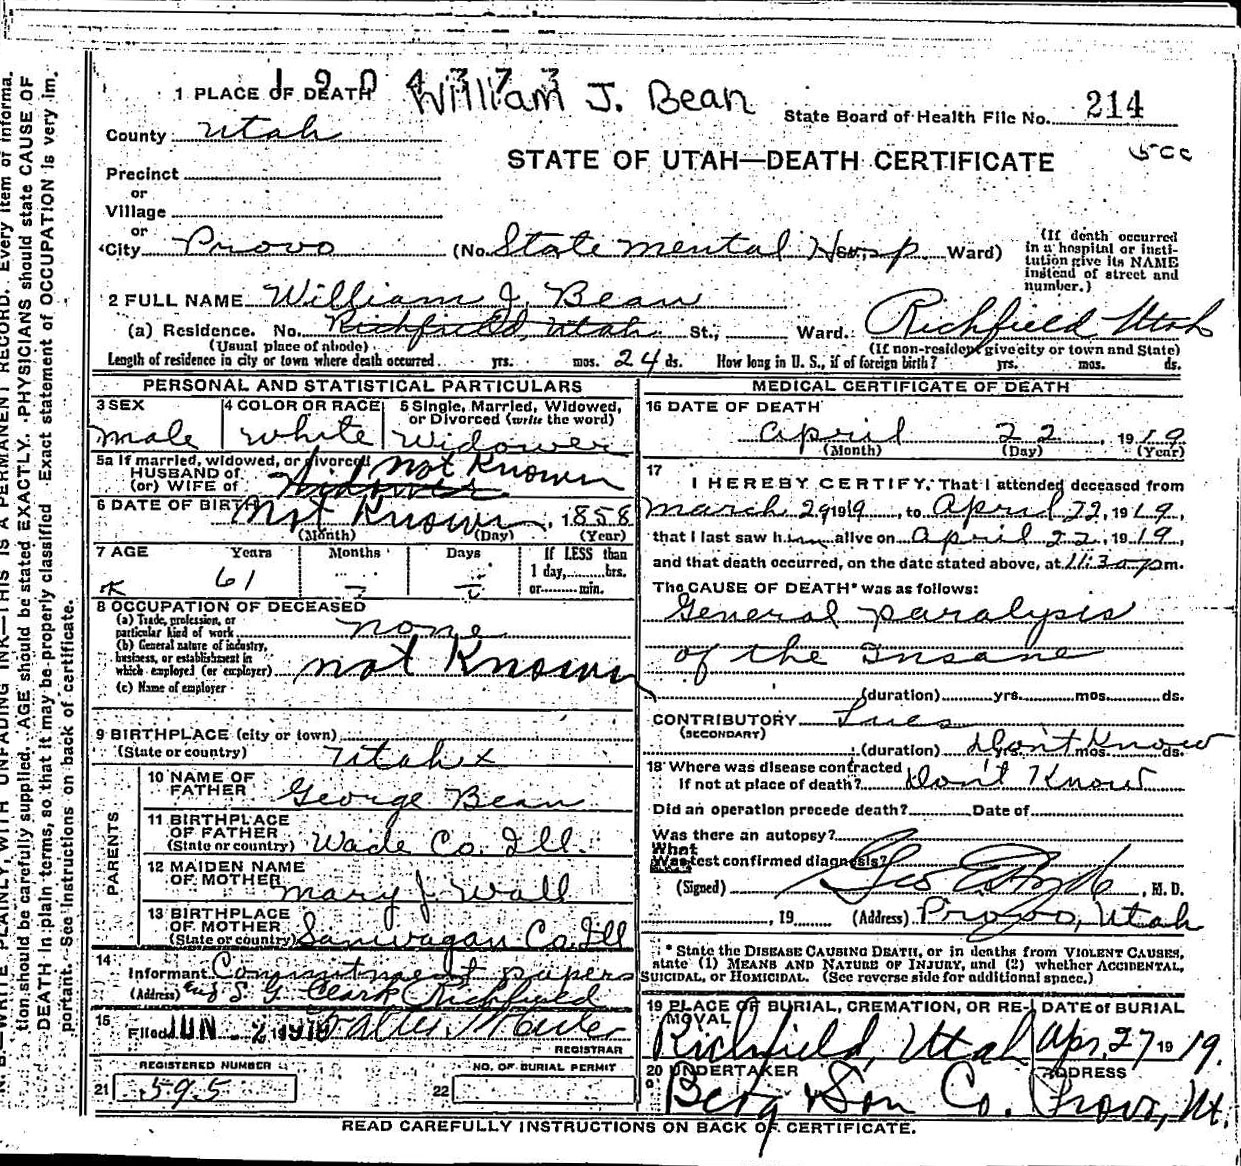 1904373
William J. Bean
1 PLACE OF DEATH
State Board of Health File No. 214
County Utah
5cc
STATE OF UTAH—DEATH CERTIFICATE
Precinct
or
Village
or
City Provo (No. State Mental Hosp St., Ward)
(If death occurred in a hospital or institution give its NAME instead of street and number.)
2 FULL NAME William J. Bean
(a) Residence. No. Richfield, Utah St., Ward. Richfield Utah
(Usual place of abode) (If non-resident give city or town and State)
Length of residence in city or town where death occurred yrs. mos. 24 ds. How long in U. S., if of foreign birth? yrs. mos. ds.
PERSONAL AND STATISTICAL PARTICULARS
3 SEX
male
4 COLOR OR RACE
white
5 Single, Married, Widowed, or Divorced (write the word)
Widower
5a If married, widowed, or divorced
HUSBAND of
(or) WIFE of
Widower
not Known
6 DATE OF BIRTH not Known, 1858
(Month) (Day) (Year)
7 AGE Years Months Days If LESS than
61 1 day,......hrs.
or......min.
8 OCCUPATION OF DECEASED
(a) Trade, profession, or
particular kind of work none
(b) General nature of industry,
business, or establishment in
which employed (or employer) not Known
(c) Name of employer
9 BIRTHPLACE (city or town)
(State or country) Utah x
PARENTS
10 NAME OF FATHER George Bean
11 BIRTHPLACE OF FATHER
(State or country) Wade Co. Ill.
12 MAIDEN NAME OF MOTHER Mary J Wall
13 BIRTHPLACE OF MOTHER
(State or country) Co. Ill
14
Informant Commitment papers
(Address) S. G. Clark Richfield
15
Filed JUN 2 1919
REGISTRAR
REGISTERED NUMBER
21 595
NO. OF BURIAL PERMIT
22
MEDICAL CERTIFICATE OF DEATH
16 DATE OF DEATH
April 22, 1919
(Month) (Day) (Year)
17
I HEREBY CERTIFY, That I attended deceased from
March 29 1919, to April 22, 1919,
that I last saw him alive on April 22, 1919,
and that death occurred, on the date stated above, at 11:30 a m.
The CAUSE OF DEATH* was as follows:
General paralysis
of the Insane
(duration) yrs. mos. ds.
CONTRIBUTORY Lues
(SECONDARY)
(duration) Don't Know yrs. mos. ds.
18 Where was disease contracted
If not at place of death? Don't Know
Did an operation precede death? Date of
Was there an autopsy?
What test confirmed diagnosis?
(Signed) Geo , M. D.
, 19 (Address) Provo, Utah
* State the DISEASE CAUSING DEATH, or in deaths from VIOLENT CAUSES,
state (1) MEANS AND NATURE OF INJURY, and (2) whether ACCIDENTAL,
SUICIDAL, or HOMICIDAL. (See reverse side for additional space.)
19 PLACE OF BURIAL, CREMATION, OR REMOVAL
Richfield, Utah
DATE of BURIAL
Apr, 27 1919.
20 UNDERTAKER
Berg & Son Co.
ADDRESS
Provo, Ut.
READ CAREFULLY INSTRUCTIONS ON BACK OF CERTIFICATE.
N. B.—WRITE PLAINLY, WITH UNFADING INK—THIS IS A PERMANENT RECORD. Every item of informa-
tion should be carefully supplied. AGE should be stated EXACTLY. PHYSICIANS should state CAUSE OF
DEATH in plain terms, so that it may be properly classified. Exact statement of OCCUPATION is very im-
portant. See instructions on back of certificate.